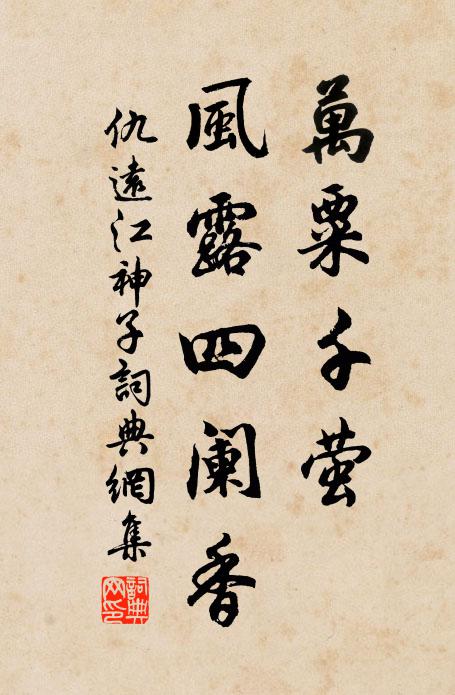 萬粟千萤
風露四阑香
仇遠江神子詞典網集
詞典
网印